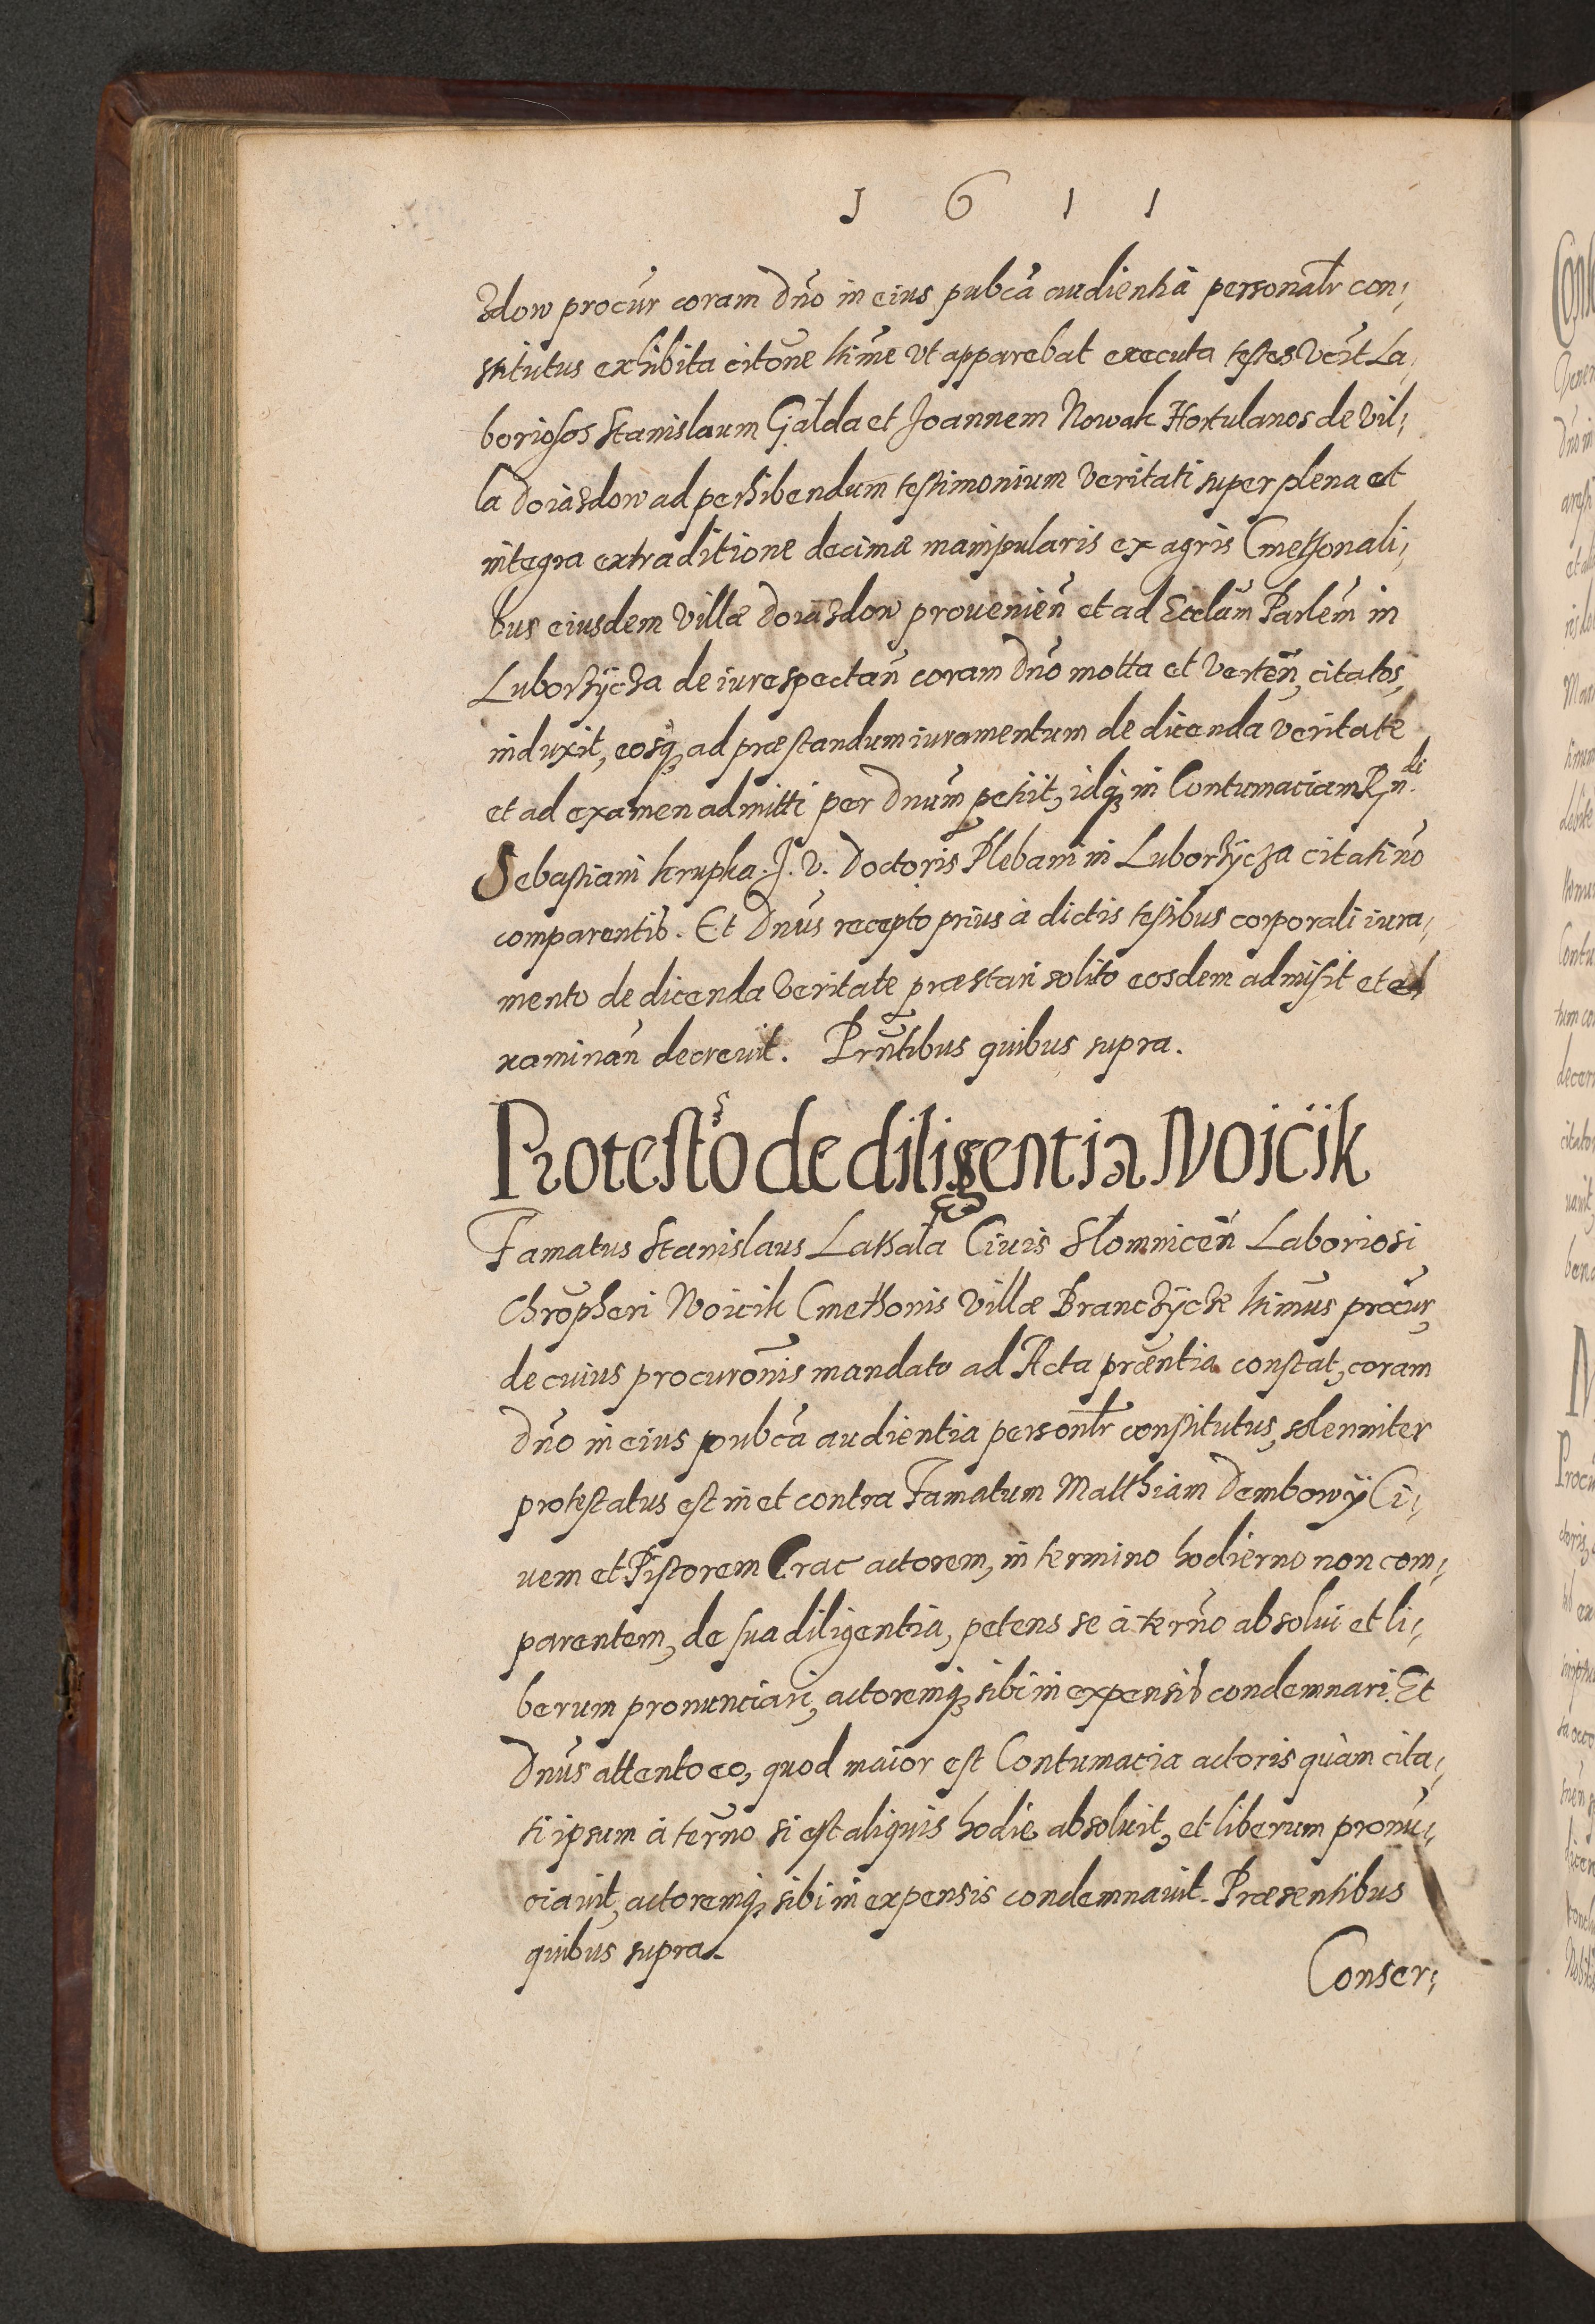 1611
zdow procur coram Dno in eius pubca audientia personalr con,
stitutus exhibita citone ltime vt apparebat executa testes vert La,
boriosos Stanislaum Gałda et Joannem Nowak Hortulanos de vil,
la doiazdow ad perhibendum testimonium veritati super plena et
integra extraditione decimæ manipularis ex agris Cmethonali,
bus eiusdem villæ doiazdow prouenien et ad Ecclam Parlem in
Luborzÿcza de iure spectan coram Dno motta et verten, citatos,
induxit, eosq, ad præstandum iuramentum de dicenda veritate
et ad examen admitti per Dnum petiit, idq in Contumaciam Rndi
Sebastiani krupka J. V. Doctoris Plebani in Luborzÿcza citati no
comparentis. Et Dnus recepto prius à dictis testibus corporali iura,
mento de dicenda veritate præstari solito eosdem admisit et e
xaminan decreuit. Prntibus quibus supra.
Protesto de diligentia Woicik
Famatus Stanislaus Lathała Ciuis Słomnicen Laboriosi
Chropheri Woicik Cmethonis villæ Branczÿcze ltimus procur,
de cuius procuronis mandato ad Acta præntia constat, coram
Dno in eius pubca audientia personlr constitutus, solenniter
protestatus est in et contra Famatum Matthiam Dembowÿ Ci,
uem et Pistorem Crac actorem, in termino hodierno non com,
parentem, de sua diligentia, petens se à terno absolui et li,
berum pronunciari, actoremq, sibi in expensis condemnari. Et
Dnus attento eo, quod maior est Contumacia actoris quàm cita,
ti ipsum à terno si est aliquis hodie absoluit, et liberum pronu,
ciauit, actoremq, sibi in expensis condemnauit. Præsentibus
quibus supra.
Conser,